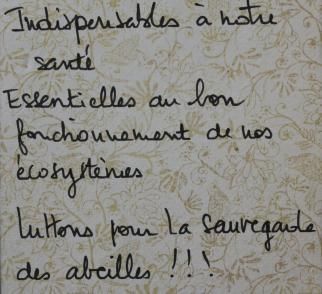 Indispensables à notre
santé
Essentielles au bon
fonctionnement de nos
écosystèmes
Luttons pour la sauvegarde
des abeilles !!!